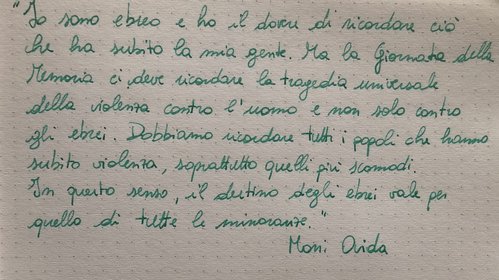 "Io sono ebreo e ho il dovere di ricordare ciò
che ha subito la mia gente. Ma la Giornata della
Memoria ci deve ricordare la tragedia universale
della violenza contro l'uomo e non solo contro
gli ebrei. Dobbiamo ricordare tutti i popoli che hanno
subito violenza, soprattutto quelli più scomodi.
In questo senso, il destino degli ebrei vale per
quello di tutte le minoranze."
Moni Ovida